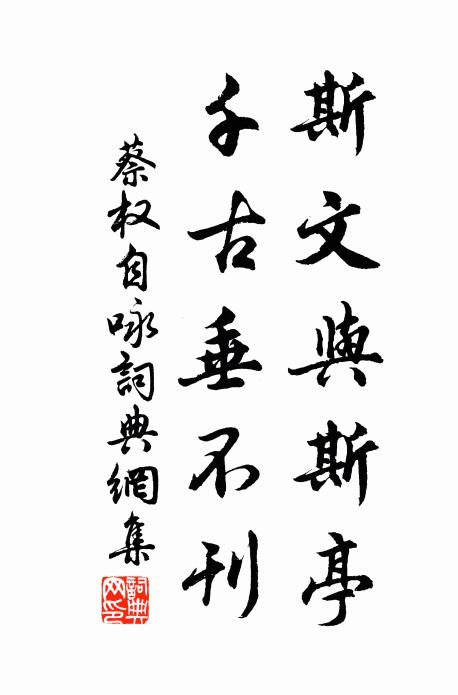 斯文與斯亭
千古垂不刊
蔡权自咏詞典網集
詞典網印